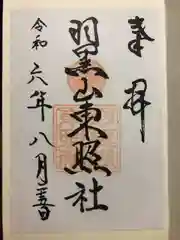 奉拝
羽黒山東照社
令和六年八月